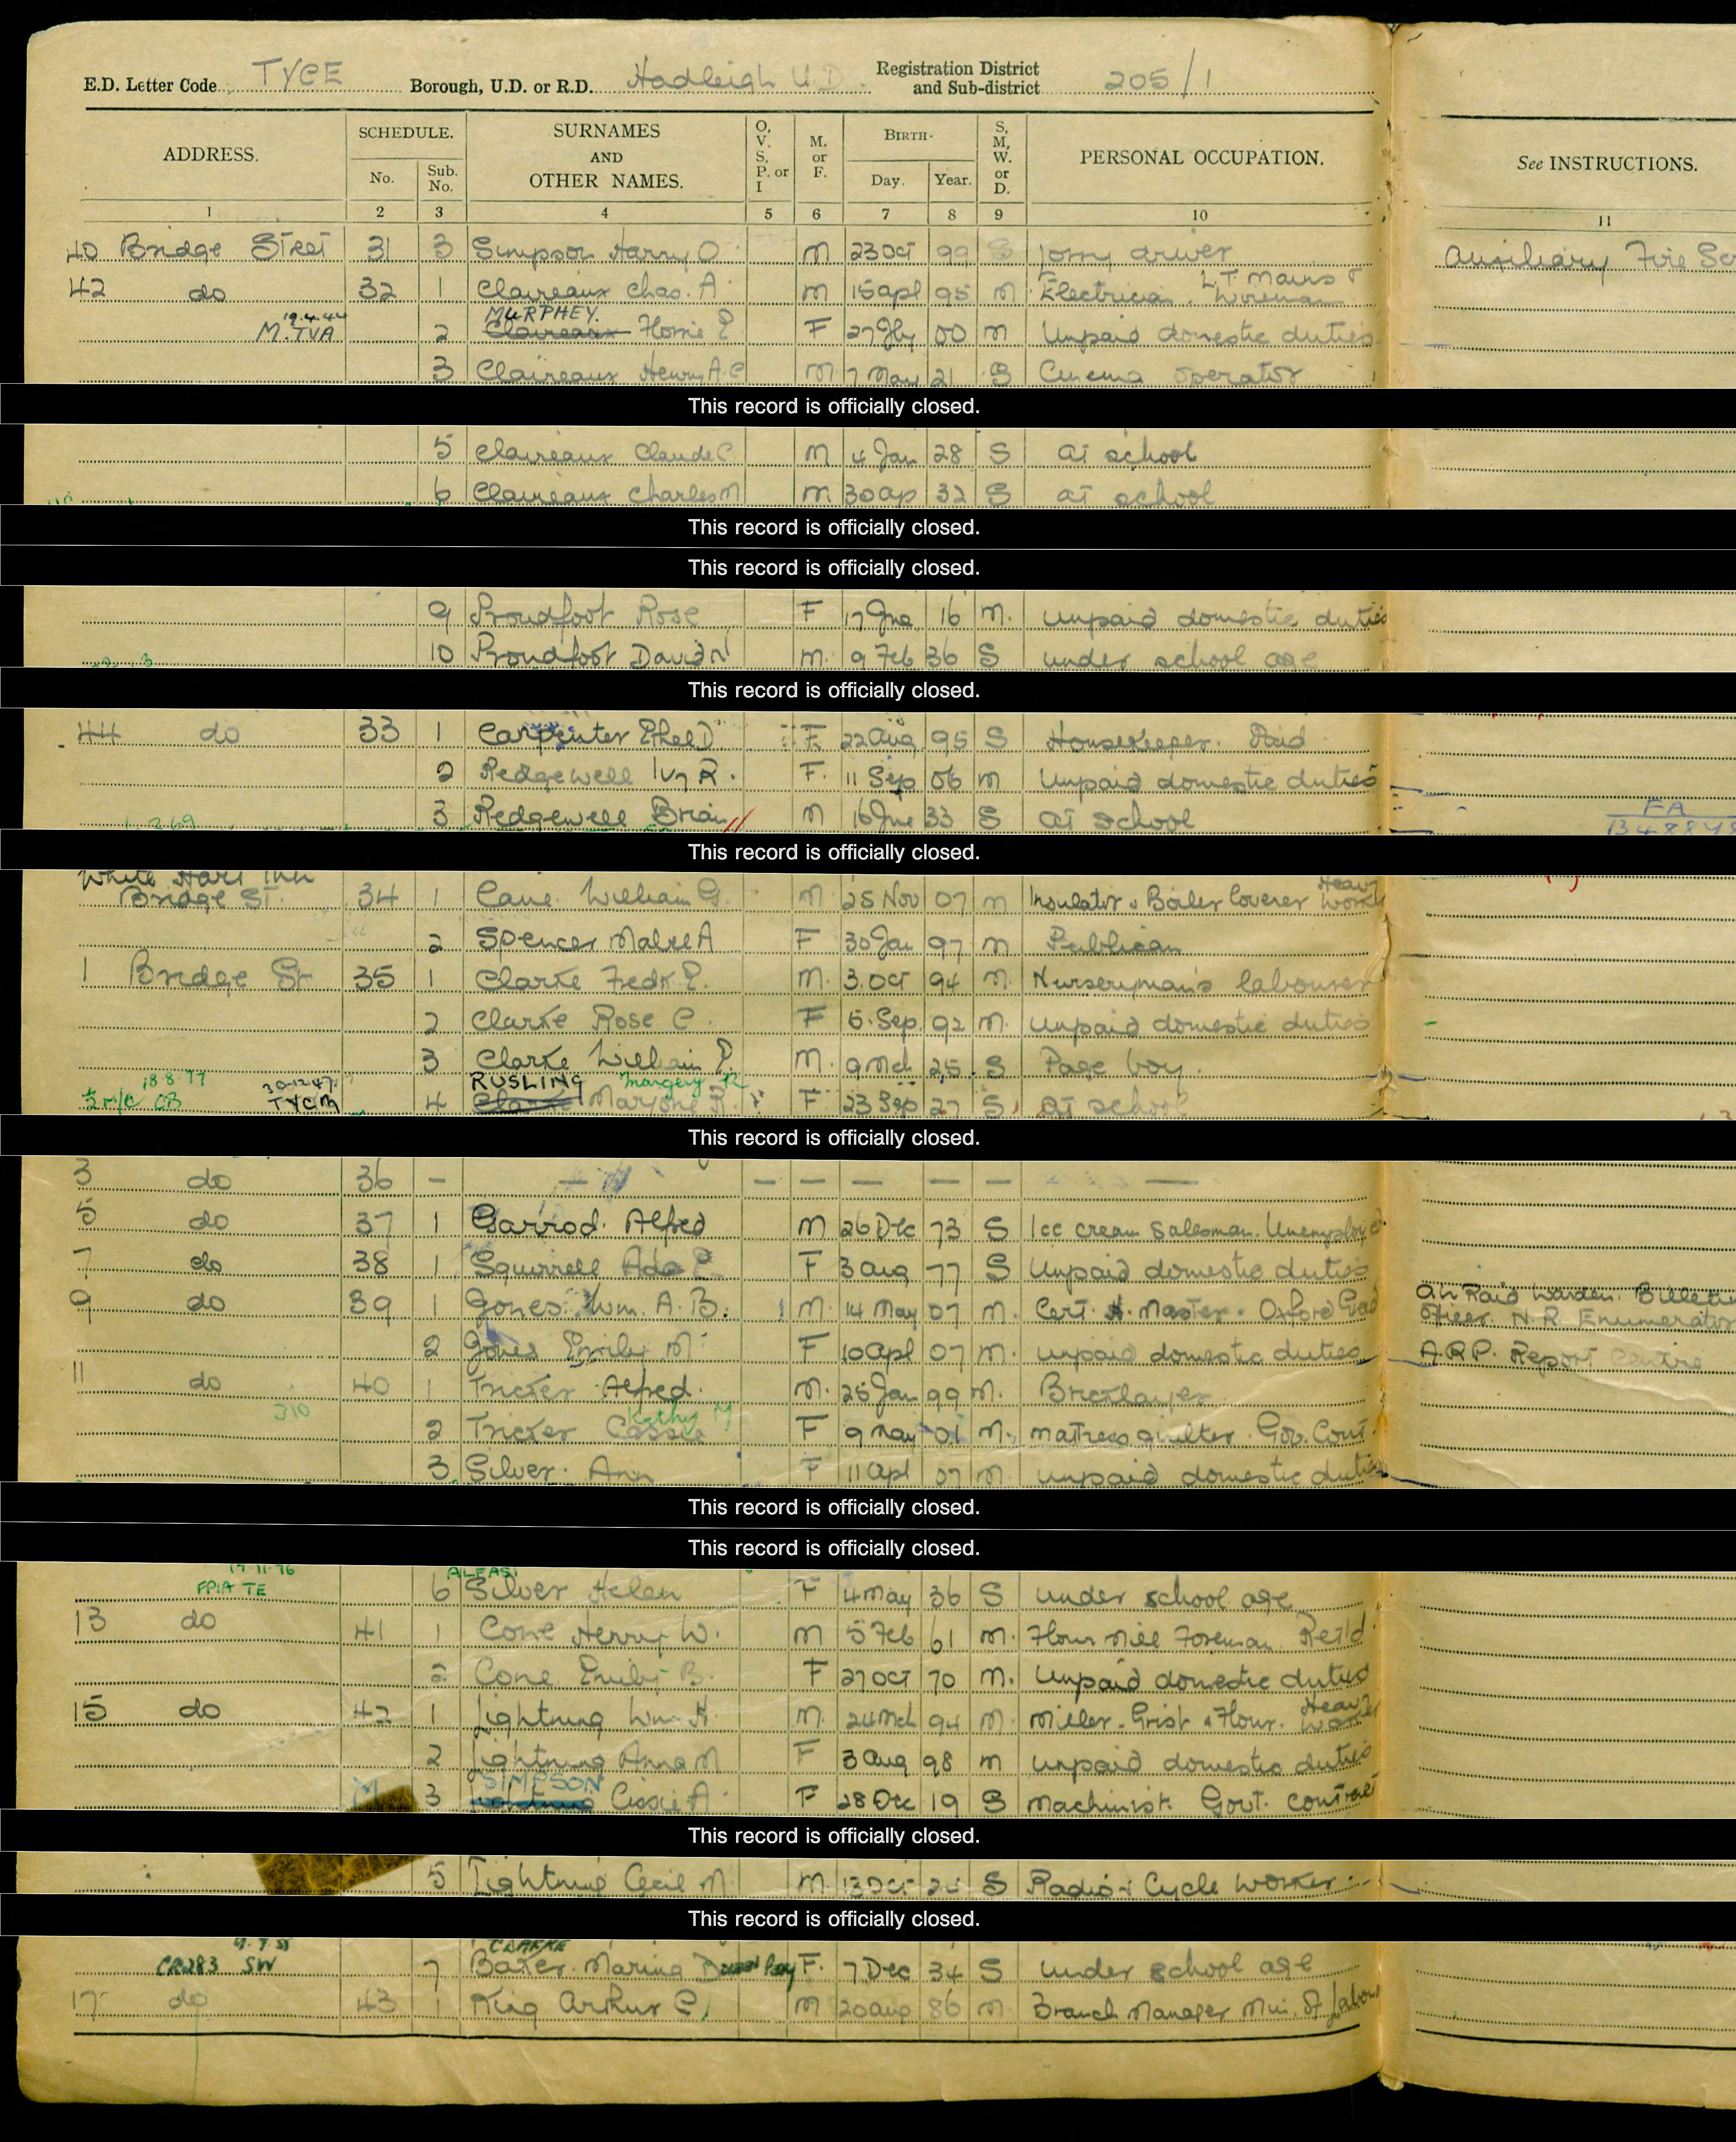 E.D. Letter Code TYCE Borough, U.D. or R.D. Hadleigh U.D. Registration District and Sub-district 205/1
ADDRESS. SCHEDULE. No. Sub. No. SURNAMES AND OTHER NAMES. O, V. S, P. or I M. or F. BIRTH- Day. Year. S, M, W. or D. PERSONAL OCCUPATION. See INSTRUCTIONS.
1 2 3 4 5 6 7 8 9 10 11
40 Bridge Street 31 3 Simpson Harry O M 23 Oct 99 S Lorry driver Auxiliary Fire Ser
42 do 32 1 Claireaux Chas. A. M 15 Apl 95 M Electrician. L.T. Mains & Wireman
19.4.44 M. TVA 2 MURPHEY. Claireaux Florrie E F 27 Jly 00 M Unpaid domestic duties
3 Claireaux Henry A.C M 7 May 21 S Cinema operator
This record is officially closed.
5 Claireaux Claude C. M 4 Jan 28 S at school
6 Claireaux Charles M M 30 ap 32 S at school
This record is officially closed.
This record is officially closed.
9 Proudfoot Rose F 17 Jne 16 M. unpaid domestic duties
10 Proudfoot David N M. 9 Feb 36 S under school age
This record is officially closed.
44 do 33 1 Carpenter Ethel D F. 22 Aug 95 S Housekeeper. Paid
2 Redgewell Ivy R. F. 11 Sep 06 M Unpaid domestic duties
3 Redgewell Brian M 16 Jne 33 S at school FA
This record is officially closed.
White Hart Inn
Bridge St. 34 1 Cane William G. M 25 Nov 07 M Insulator & Boiler Coverer Heavy Work
2 Spencer Mabel A F 30 Jan 97 M Publican
1 Bridge St 35 1 Clarke Fredk E. M. 3. Oct 94 M. Nurseryman's labourer
2 Clarke Rose C. F 5. Sep. 92 M. unpaid domestic duties
3 Clarke William E M. 9 Mch 25. S Page boy.
18.8.77 CB 30-12-47 TYCM 4 RUSLING Margery R Clarke Marjorie R. F 23 Sep 27 S at school
This record is officially closed.
3 do 36 - — — — — — — —
5 do 37 1 Garrod. Alfred M 26 Dec 73 S Ice cream Salesman. Unemployed
7 do 38 1 Squirrell Ada E F 3 Aug 77 S Unpaid domestic duties
9 do 39 1 Jones. Wm. A. B. M. 14 May 07 M. Cert. A. Master. Oxford Grad Air Raid Warden. Billetin Officer. N.R. Enumerator
2 Jones Emily M. F 10 Apl 07 M. unpaid domestic duties A.R.P. Report Centre
11 do 40 1 Tricker Alfred. M. 25 Jan 99 M. Bricklayer
310 2 Tricker Cassie Kathy M F 9 May 01 M. mattress quilter. Gov. Cont.
3 Silver. Ann F 11 Apl 07 M. unpaid domestic duties
This record is officially closed.
This record is officially closed.
FPIA TE 6 Silver Helen F 4 May 36 S under school age
13 do 41 1 Cone Henry W. M 5 Feb 61 M. Flour Mill Foreman. Ret'd
2 Cone Emily B. F 27 Oct 70 M. Unpaid domestic duties
15 do 42 1 Lightning Wm. H. M. 24 Mch 94 M. Miller. Grist & Flour. Heavy Work
2 Lightning Anna M F 3 Aug 98 M unpaid domestic duties
M 3 SIMPSON Lightning Cissie A F 28 Dec 19 S Machinist Govt. contract
This record is officially closed.
5 Lightning Cecil M. M. 13 Oct S Radio & Cycle Worker
This record is officially closed.
9.7.51 CR283 SW 7 CLARKE Baker. Marina F. 7 Dec 34 S under school age
17 do 43 1 King Arthur C. M 20 Aug 86 M Branch Manager Min. of Labour